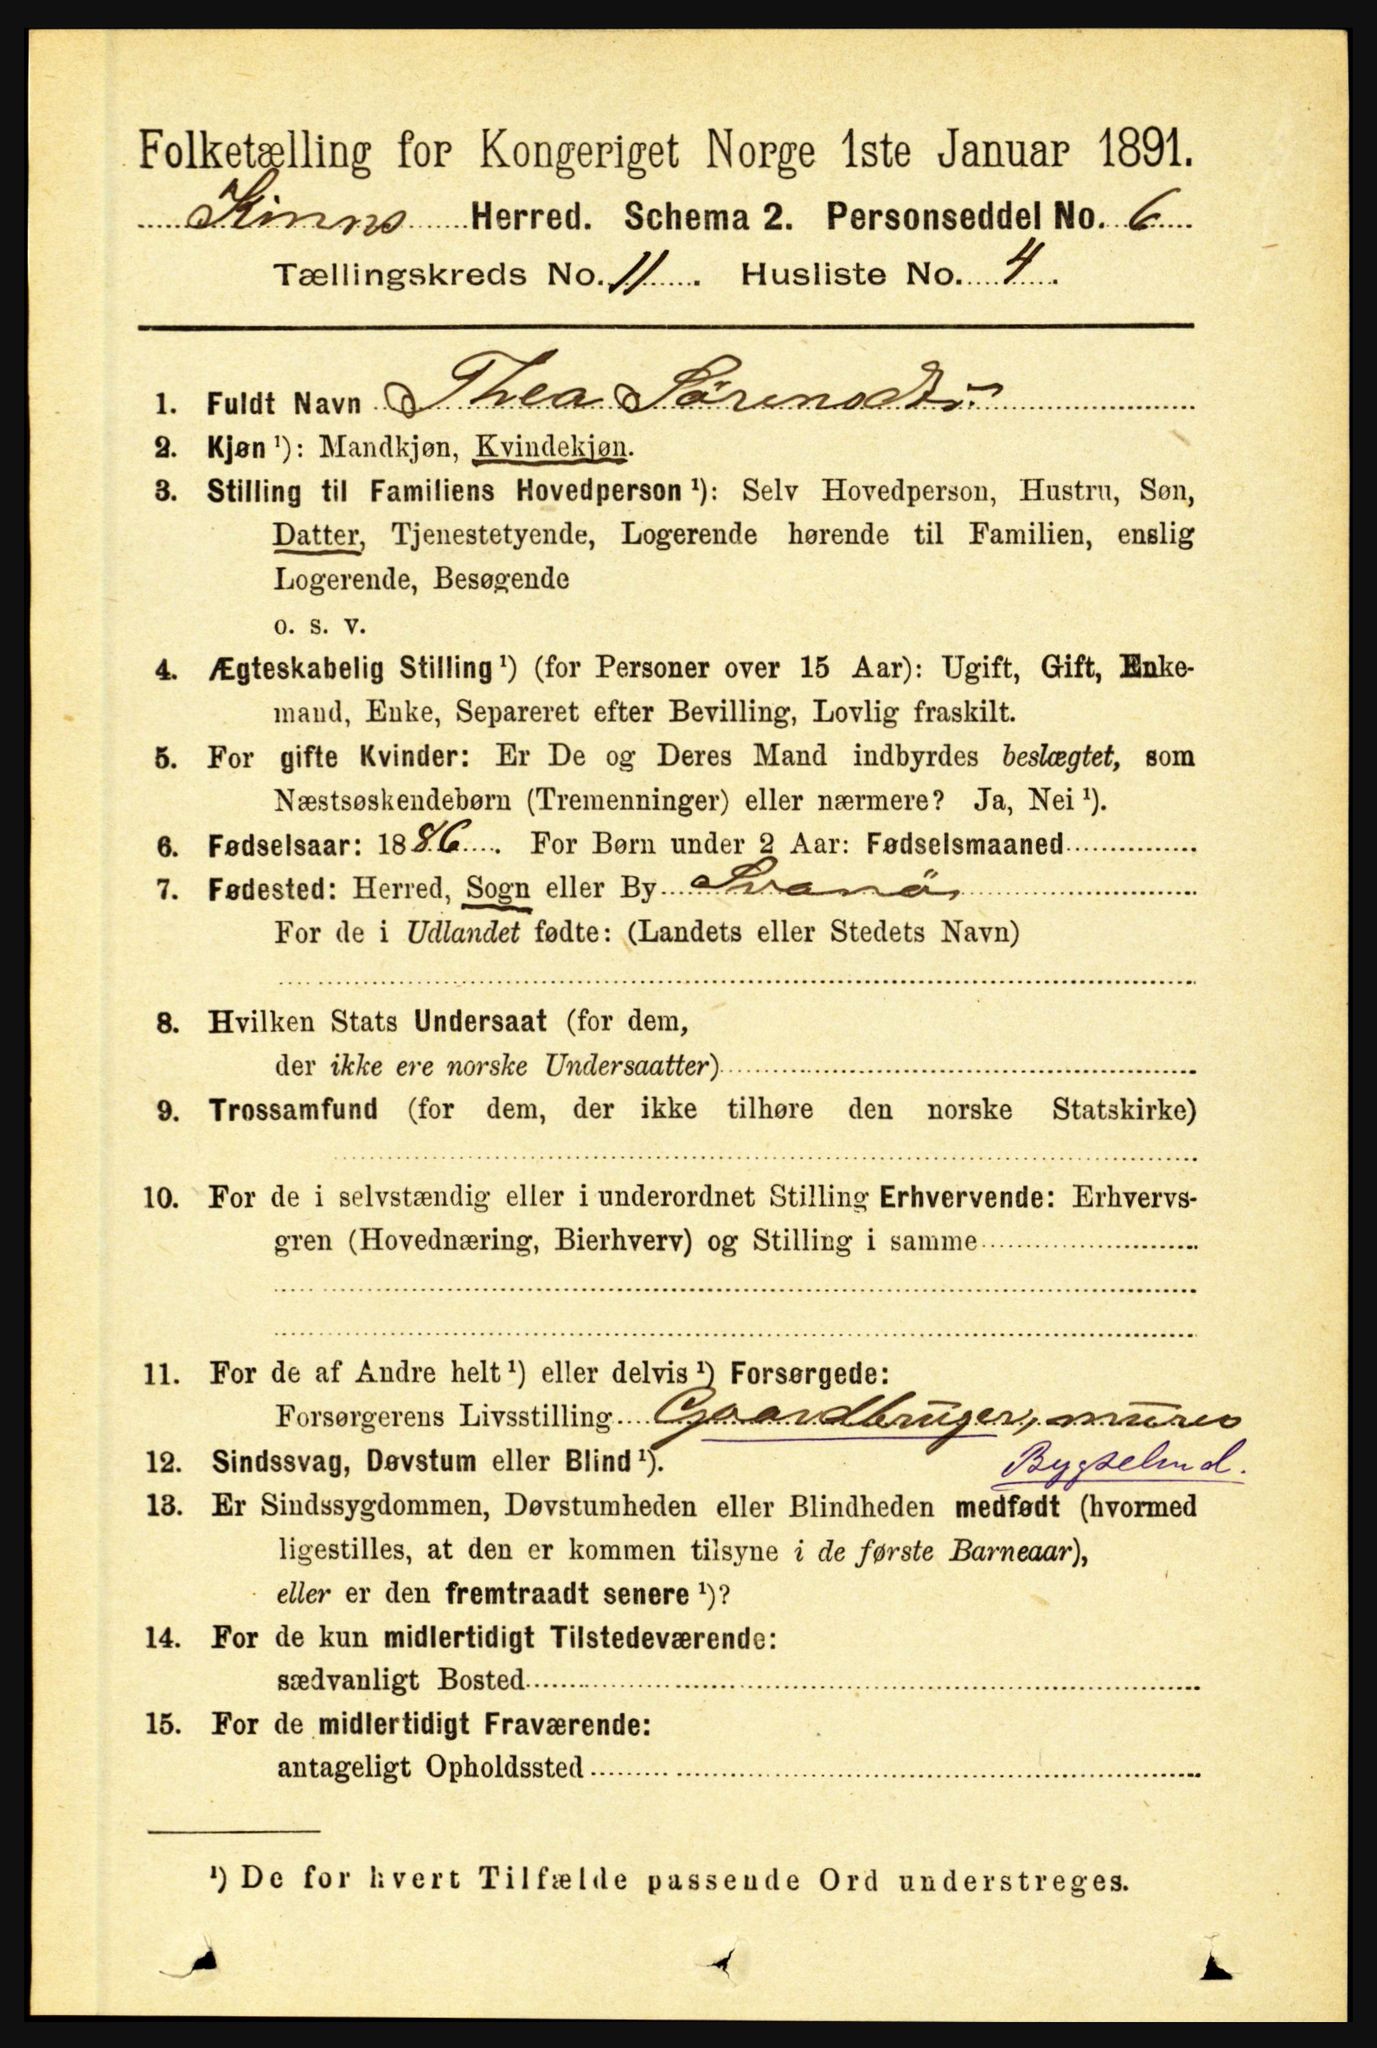 Folketælling for Kongeriget Norge 1ste Januar 1891.
Kinns Herred. Schema 2. Personseddel No. 6
Tællingskreds No. 11. Husliste No. 4.
1. Fuldt Navn Thea Sørensdtr
2. Kjøn ¹): Mandkjøn, Kvindekjøn.
3. Stilling til Familiens Hovedperson ¹): Selv Hovedperson, Hustru, Søn,
Datter, Tjenestetyende, Logerende hørende til Familien, enslig
Logerende, Besøgende
o. s. v.
4. Ægteskabelig Stilling ¹) (for Personer over 15 Aar): Ugift, Gift, Enke-
mand, Enke, Separeret efter Bevilling, Lovlig fraskilt.
5. For gifte Kvinder: Er De og Deres Mand indbyrdes beslægtet, som
Næstsøskendebørn (Tremenninger) eller nærmere? Ja, Nei ¹).
6. Fødselsaar: 1886. For Børn under 2 Aar: Fødselsmaaned
7. Fødested: Herred, Sogn eller By Svanö
For de i Udlandet fødte: (Landets eller Stedets Navn)
8. Hvilken Stats Undersaat (for dem,
der ikke ere norske Undersaatter)
9. Trossamfund (for dem, der ikke tilhøre den norske Statskirke)
10. For de i selvstændig eller i underordnet Stilling Erhvervende: Erhvervs-
gren (Hovednæring, Bierhverv) og Stilling i samme
11. For de af Andre helt ¹) eller delvis ¹) Forsørgede:
Forsørgerens Livsstilling Gaardbruger,
12. Sindssvag, Døvstum eller Blind ¹). Bygselmd.
13. Er Sindssygdommen, Døvstumheden eller Blindheden medfødt (hvormed
ligestilles, at den er kommen tilsyne i de første Barneaar),
eller er den fremtraadt senere ¹)?
14. For de kun midlertidigt Tilstedeværende:
sædvanligt Bosted
15. For de midlertidigt Fraværende:
antageligt Opholdssted
¹) De for hvert Tilfælde passende Ord understreges.